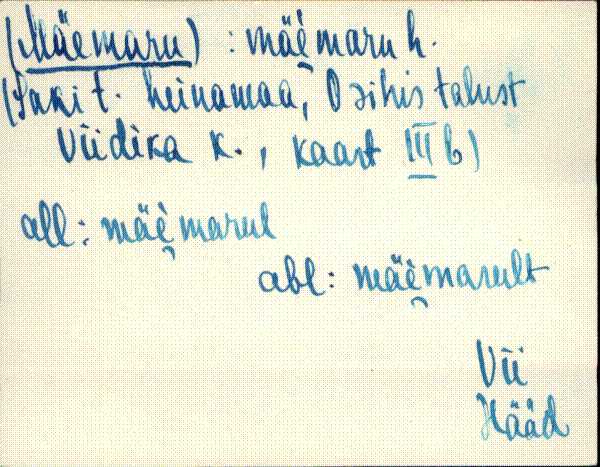 (Mäemaru) : mäè̯maru h.
(Saki t. heinamaa, O sihis talust
Viidika k., kaart III b)
all: mäè̯marul
abl: mäè̯marult
Vii
Hääd